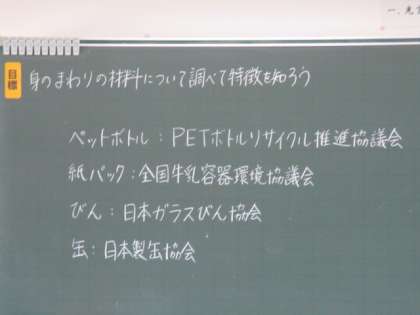 一、
目標
身のまわりの材料について調べて特徴を知ろう
ペットボトル：PETボトルリサイクル推進協議会
紙パック：全国牛乳容器環境協議会
びん：日本ガラスびん協会
缶：日本製缶協会